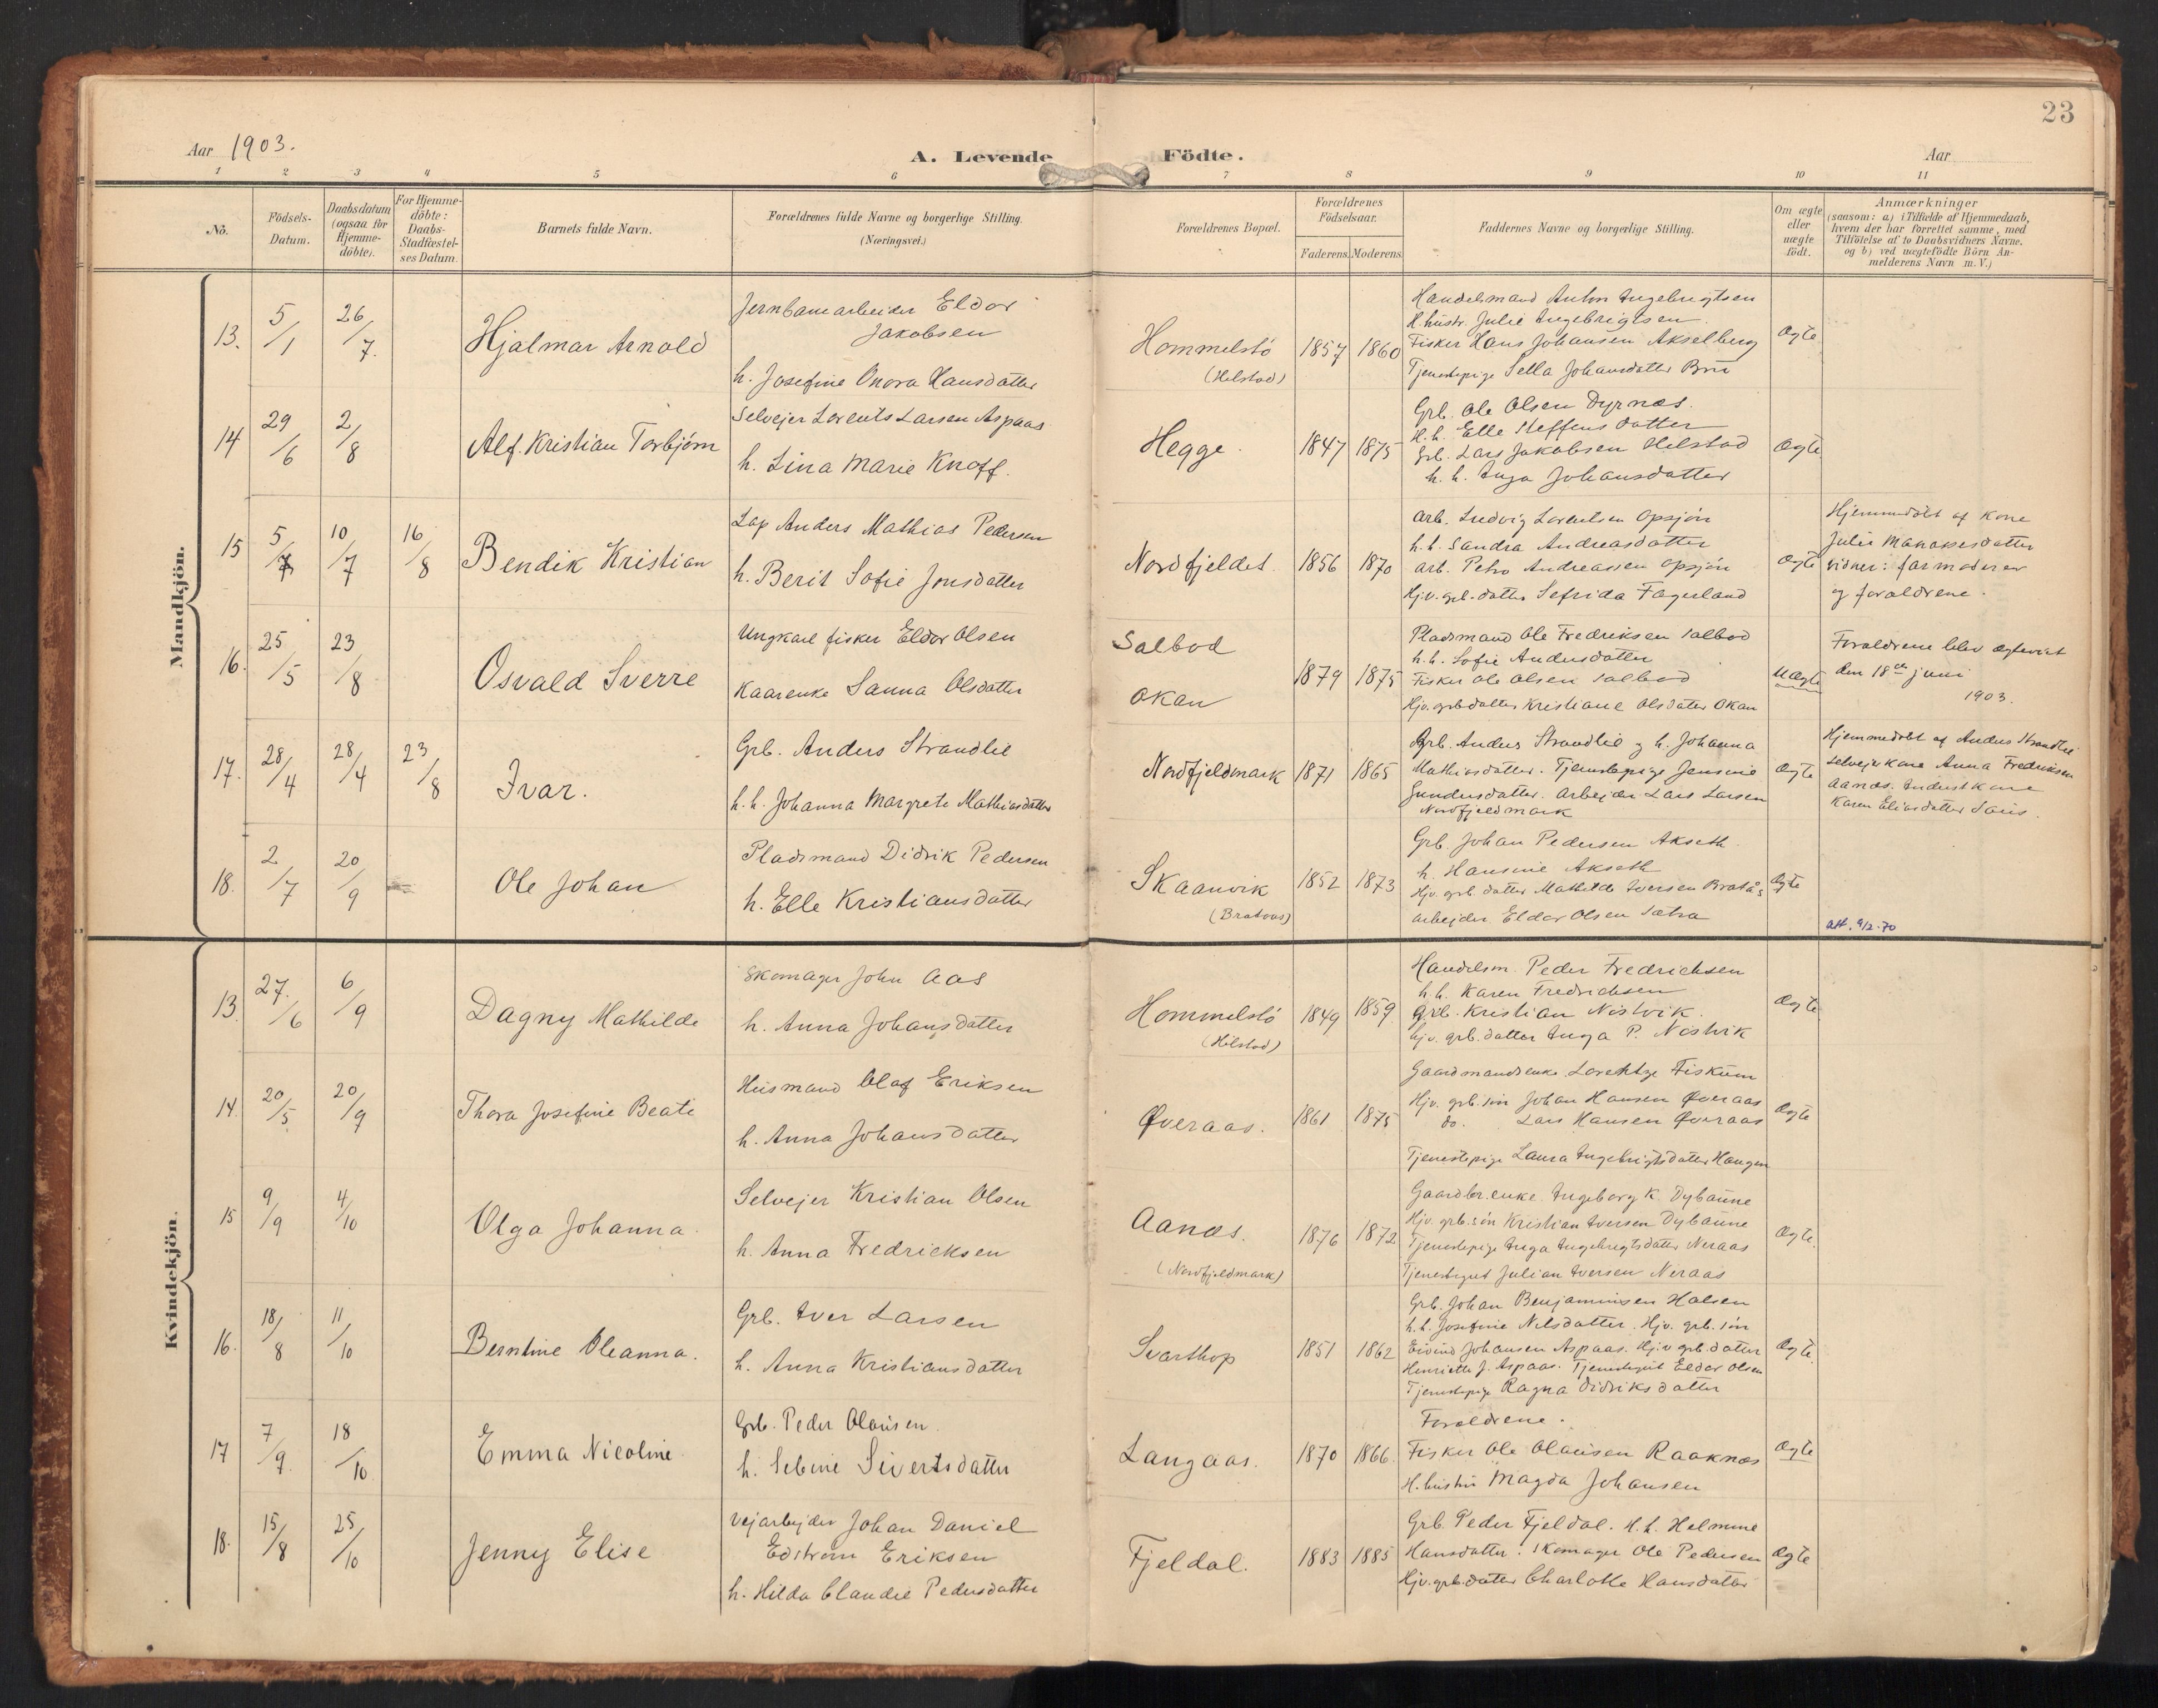 23
Aar 1903.
A. Levende Födte.
Aar
1 2 3 4 5 6 7 8 9 10 11
No.
Födsels-Datum.
Daabsdatum (ogsaa for Hjemme-döbte).
For Hjemme-döbte: Daabs-Stadfæstel-ses Datum.
Barnets fulde Navn.
Forældrenes fulde Navne og borgerlige Stilling.
(Næringsvei.)
Forældrenes Bopæl.
Forældrenes Födselsaar.
Faderens. Moderens.
Faddernes Navne og borgerlige Stilling.
Om ægte eller uægte födt.
Anmærkninger
(saasom: a) i Tilfælde af Hjemmedaab,
hvem der har forrettet samme, med
Tilföielse af to Daabsvidners Navne.
og b) ved uægtefödte Börn An-
melderens Navn m. V.)
Mandkjön.
13. 5/1 26/7. Hjalmar Arnold
Jernbanearbeider Eldor
Jakobsen
h. Josefine Onora Hansdatter
Hommelstö
(Helstad)
1857 1860
Handelsmand Anton Ingebrigtsen
H. hustr. Julie Ingebrigtsen
Fisker Hans Johansen Akselberg
Tjenestepige Sella Johansdatter Brü
Ægte
14 29/6 2/8 Alf Kristian Torbjörn
Selvejer Lorents Larsen Aspaas
h. Lina Marie Knoff.
Hegge.
1847 1875
Grb. Ole Olsen Dyrnæs.
H.h. Elle Steffensdatter
Grb. Lars Jakobsen Helstad
h. h. Inga Johansdatter
Ægte
15 5/7 10/7 16/8 Bendik Kristian
Lap Anders Mathias Pedersen
h. Berit Sofie Jonsdatter
Nordfjeldet.
1856 1870
Arb. Ludvig Lorentsen Opsjön
h. h. Sandra Andreasdatter
Arb. Petro Andreassen Opsjön
Hjv. grb. datter Sefrida Fagerland
Ægte
Hjemmedöbt af Kone
Julie Manassesdatter
vidner: farmoderen
og forældrene.
16. 25/5 23/8 Osvald Sverre
Ungkarl fisker Eldor Olsen
Kaarenke Sanna Olsdatter
Salbod
Okan
1879 1875
Pladsmand Ole Fredriksen Salbod
h. h. Sofie Andersdatter
Fisker Ole Olsen Salbod
Hjv. grbdatter Kristiane Olsdatter Okan
Uægte
Forældrene blev ægteviet
den 18de juni
1903.
17. 28/4 28/4 23/8 Ivar.
Grb. Anders Strandlie
h. h. Johanna Margrete Mathiasdatter
Nordfjeldmark
1871 1865
Grb. Anders Strandlie og h. Johanna
Mathiasdatter. Tjenestepige Jensine
Gundersdatter. Arbejder Lars Larsen
Nordfjeldmark
Ægte
Hjemmedöbt af Anders Strandlie
Selvejerkone Anna Fredriksen
Aanæs. Inderstkone
Karen Eliasdatter
18. 2/7 20/9 Ole Johan
Pladsmand Didrik Pedersen
h. Elle Kristiansdatter
Skaanvik
(Brataas)
1852 1873
Grb. Johan Pedersen Akseth
h. Hansine Akseth
Hjv. grb datter Mathilde Iversen Bratås
Arbejder Eldar Olsen Sætra
Ægte
att. 9/2-70
Kvindekjön.
13. 27./6 6/9 Dagny Mathilde
Skomager John Aas
h. Anna Johansdatter
Hommelstö
(Helstad)
1849 1859
Handelsm. Peder Fredrichsen
h. h. Karen Fredrichsen
Grb. Kristian Nöstvik.
hjv. grb. datter Inga P. Nöstvik
Ægte
14. 20/5 20/9 Thora Josefine Beate
Husmand Olaf Eriksen
h. Anna Johansdatter
Øveraas.
1861 1875
Gaardmandsenke Lorentze Fiskum
Hjv. grb. sön Johan Hansen Øveraas
do. Lars Hansen Øveraas
Tjenestepige Laura Ingebrigtsdatter Haugen
Ægte
15 9/9 4/10 Olga Johanna.
Selvejer Kristian Olsen
h. Anna Fredricksen
Aanæs.
(Nordfjeldmark)
1876 1872
Gaardbr. enke Ingeborg K. Dybaune
Hjv. grb. sön Kristian Iversen Dybaune
Tjenestepige Inga Ingebrigtsdatter Neraas
Tjenestegut Julian Iversen Neraas
Ægte.
16. 18/8 11/10 Berntine Oleanna.
Grb. Iver Larsen
h. Anna Kristiansdatter
Svarthop
1851 1862
Grb. Johan Benjaminsen Halsen
h. h. Josefine Nilsdatter. Hjv. grb. sön
Eivind Johansen Aspaas. Hjv grb. datter
Henriette J. Aspaas. Tjenestegut Eldor Olsen
Tjenestepige Ragna Didriksdatter
Ægte.
17 7/9 18/10 Emma Nicoline
Grb. Peder Olausen.
h. Sebine Sivertsdatter
Langaas.
1870 1866.
Forældrene.
Fisker Ole Olausen Raaknæs
H. hustru Magda Johansen
Ægte
18. 15/8 25/10 Jenny Elise
Vejarbejder Johan Daniel
Edstrøm Eriksen
h. Hilda Claudie Pedersdatter
Fjeldal.
1883 1885
Grb. Peder Fjeldal. H. h. Helmine
Hansdatter. Skomager Ole Pedersen
Hjv. grb. datter Charlotte Hansdatter
Ægte